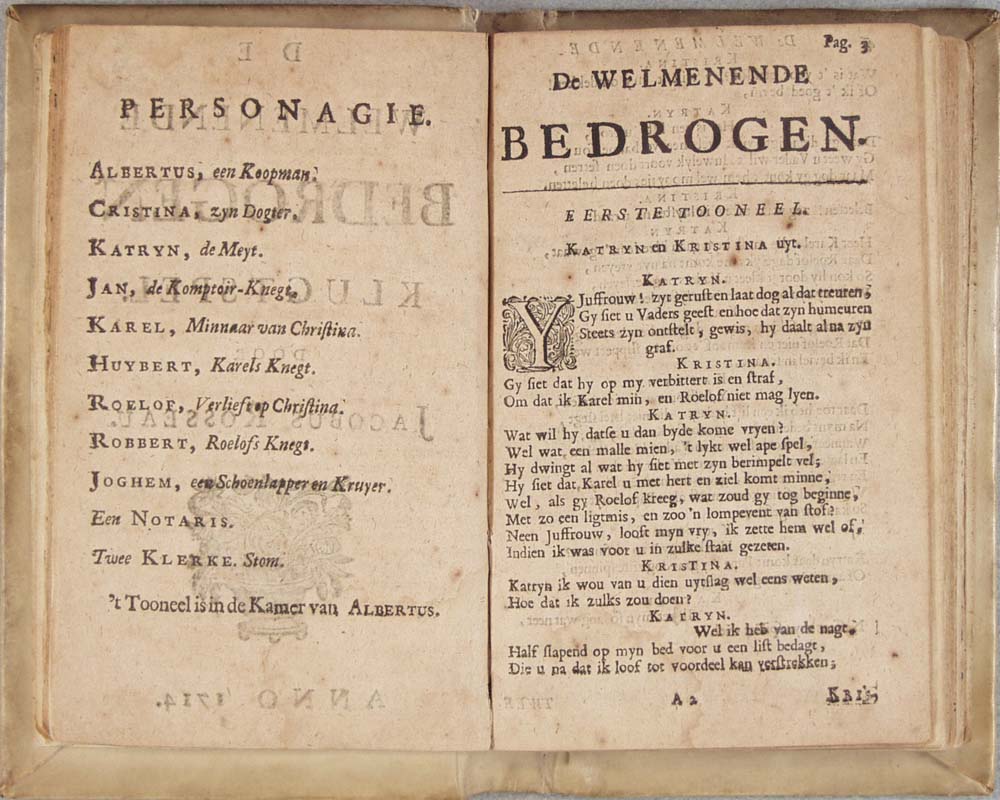 PERSONAGIE.
ALBERTUS, een Koopman.
CRISTINA, zyn Dogter.
KATRYN, de Meyt.
JAN, de Komptoir-Knegt.
KAREL, Minnaar van Christina.
HUYBERT, Karels Knegt.
ROELOF, Verlieft op Christina.
ROBBERT, Roelofs Knegt.
JOGHEM, een Schoenlapper en Kruyer.
Een NOTARIS.
Twee KLERKE. Stom.
't Tooneel is in de Kamer van ALBERTUS.
Pag. 3
De WELMENENDE
BEDROGEN.
EERSTE TOONEEL.
KATRYN en KRISTINA uyt.
KATRYN.
Y Juffrouw! zyt gerust en laat dog al dat treuren;
Gy siet u Vaders geest en hoe dat zyn humeuren
Steets zyn ontstelt, gewis, hy daalt al na zyn
graf.
KRISTINA.
Gy siet dat hy op my verbittert is en straf,
Om dat ik Karel min, en Roelof niet mag lyen.
KATRYN.
Wat wil hy datse u dan byde kome vryen?
Wel wat een malle mien, 't lykt wel ape spel,
Hy dwingt al wat hy siet met zyn berimpelt vel;
Hy siet dat Karel u met hert en ziel komt minne,
Wel, als gy Roelof kreeg, wat zoud gy tog beginne,
Met zo een ligtmis, en zoo 'n lompevent van stof?
Neen Juffrouw, looft myn vry, ik zette hem wel of,
Indien ik was voor u in zulke staat gezeten.
KRISTINA.
Katryn ik wou van u dien uytslag wel eens weten,
Hoe dat ik zulks zou doen?
KATRYN.
Wel ik heb van de nagt,
Half slapend op myn bed voor u een list bedagt,
Die u na dat ik loof tot voordeel kan verstrekken;
A 2 KRIS-